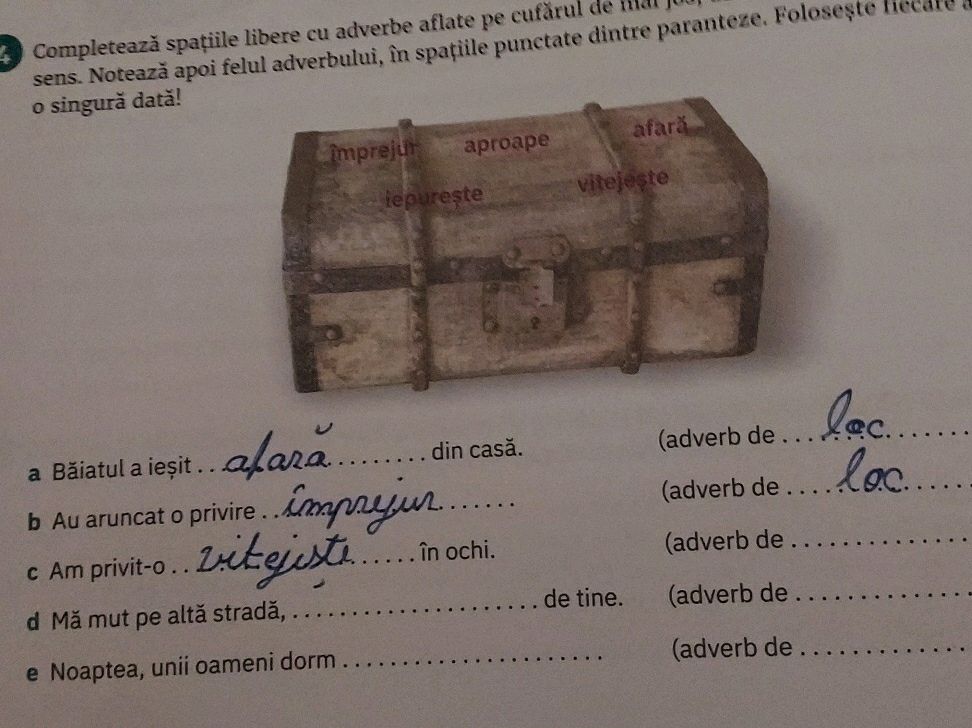 4 Completează spațiile libere cu adverbe aflate pe cufărul de mai jos,
sens. Notează apoi felul adverbului, în spațiile punctate dintre paranteze. Folosește fiecare
o singură dată!
împrejur aproape afară
iepurește vitejește
a Băiatul a ieșit . . afară . . . . . . . . din casă. (adverb de . . . loc . . . . . . .
b Au aruncat o privire . . împrejur . . . . . . . (adverb de . . . . loc . . . . .
c Am privit-o . . vitejiște . . . . . în ochi. (adverb de . . . . . . . . . . . . .
d Mă mut pe altă stradă, . . . . . . . . . . . . . . . . . . . . de tine. (adverb de . . . . . . . . . . . . .
e Noaptea, unii oameni dorm . . . . . . . . . . . . . . . . . . . . . (adverb de . . . . . . . . . . . . .